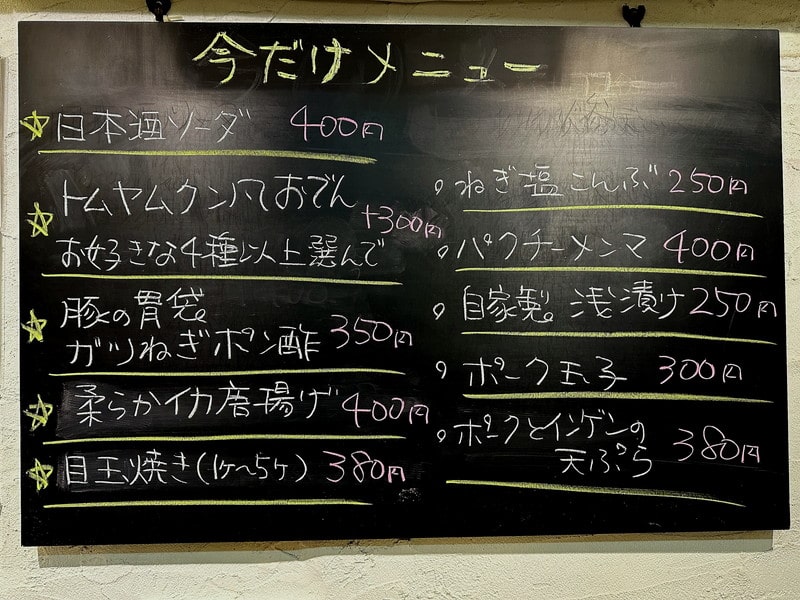 今だけメニュー
日本酒ソーダ 400円
トムヤムクン風おでん
+300円
お好きな4種以上選んで
豚の胃袋
ガツねぎポン酢 350円
柔らかイカ唐揚げ 400円
目玉焼き(1ヶ〜5ヶ) 380円
ねぎ塩こんぶ 250円
パクチーメンマ 400円
自家製 浅漬け 250円
ポーク玉子 300円
ポークとインゲンの
天ぷら 380円